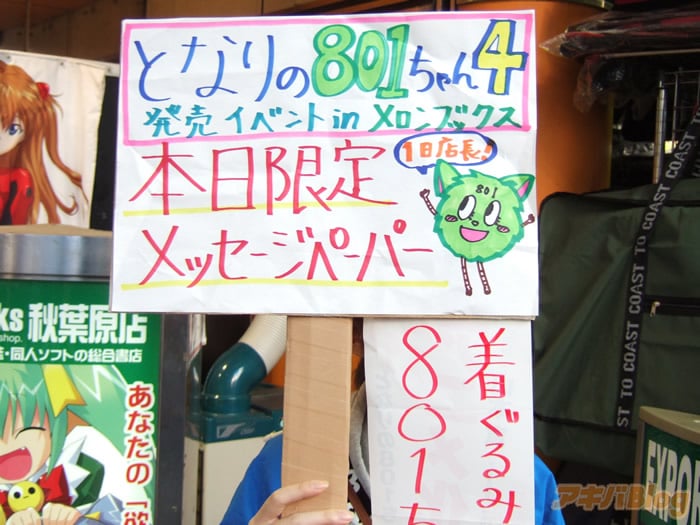 となりの801ちゃん4
発売イベント in メロンブックス
本日限定
1日店長!
801
メッセージペーパー
着ぐるみ
801ち
ks 秋葉原店
shop.
・同人ソフトの総合書店
あなたの「欲
ST TO COAST COAST TO COAST
EXPOR
アキバBlog